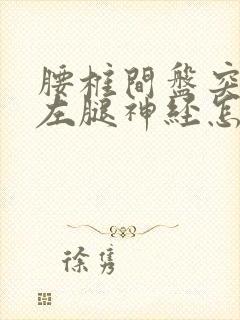 腰椎間盤突
左腿神经怎
徐隽